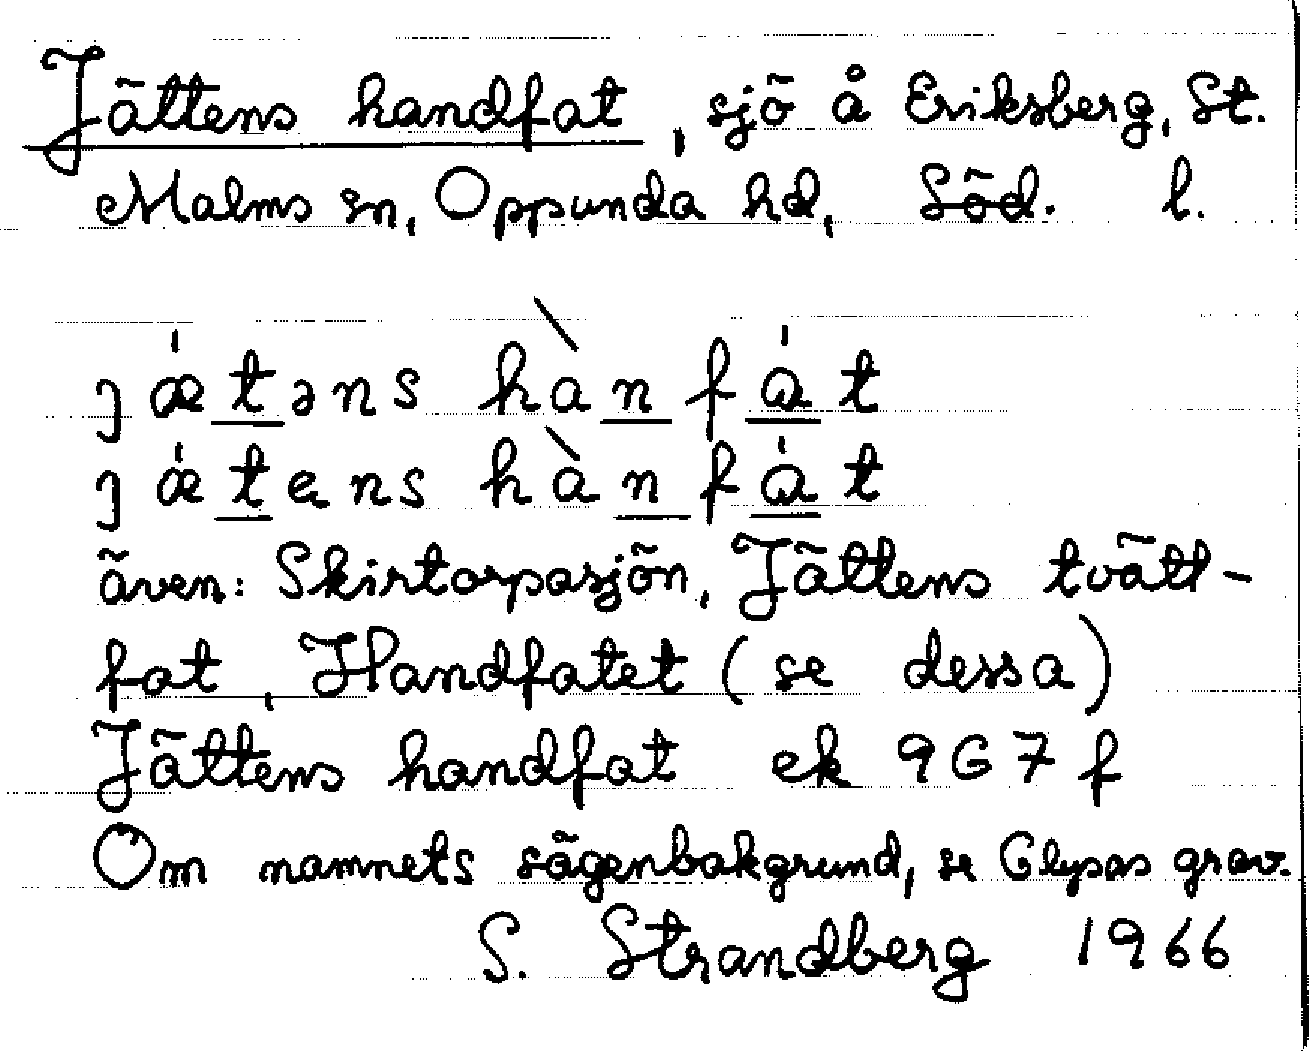 Jättens handfat, sjö å Eriksberg, St.
Malms sn, Oppunda hd, Söd. l.
jǽtəns hànfát
jǽtens hànfát
även: Skirtorpasjön, Jättens tvätt-
fat, Handfatet (se dessa)
Jättens handfat ek 9G7f
Om namnets sägenbakgrund, se Elysas grav.
S. Strandberg 1966